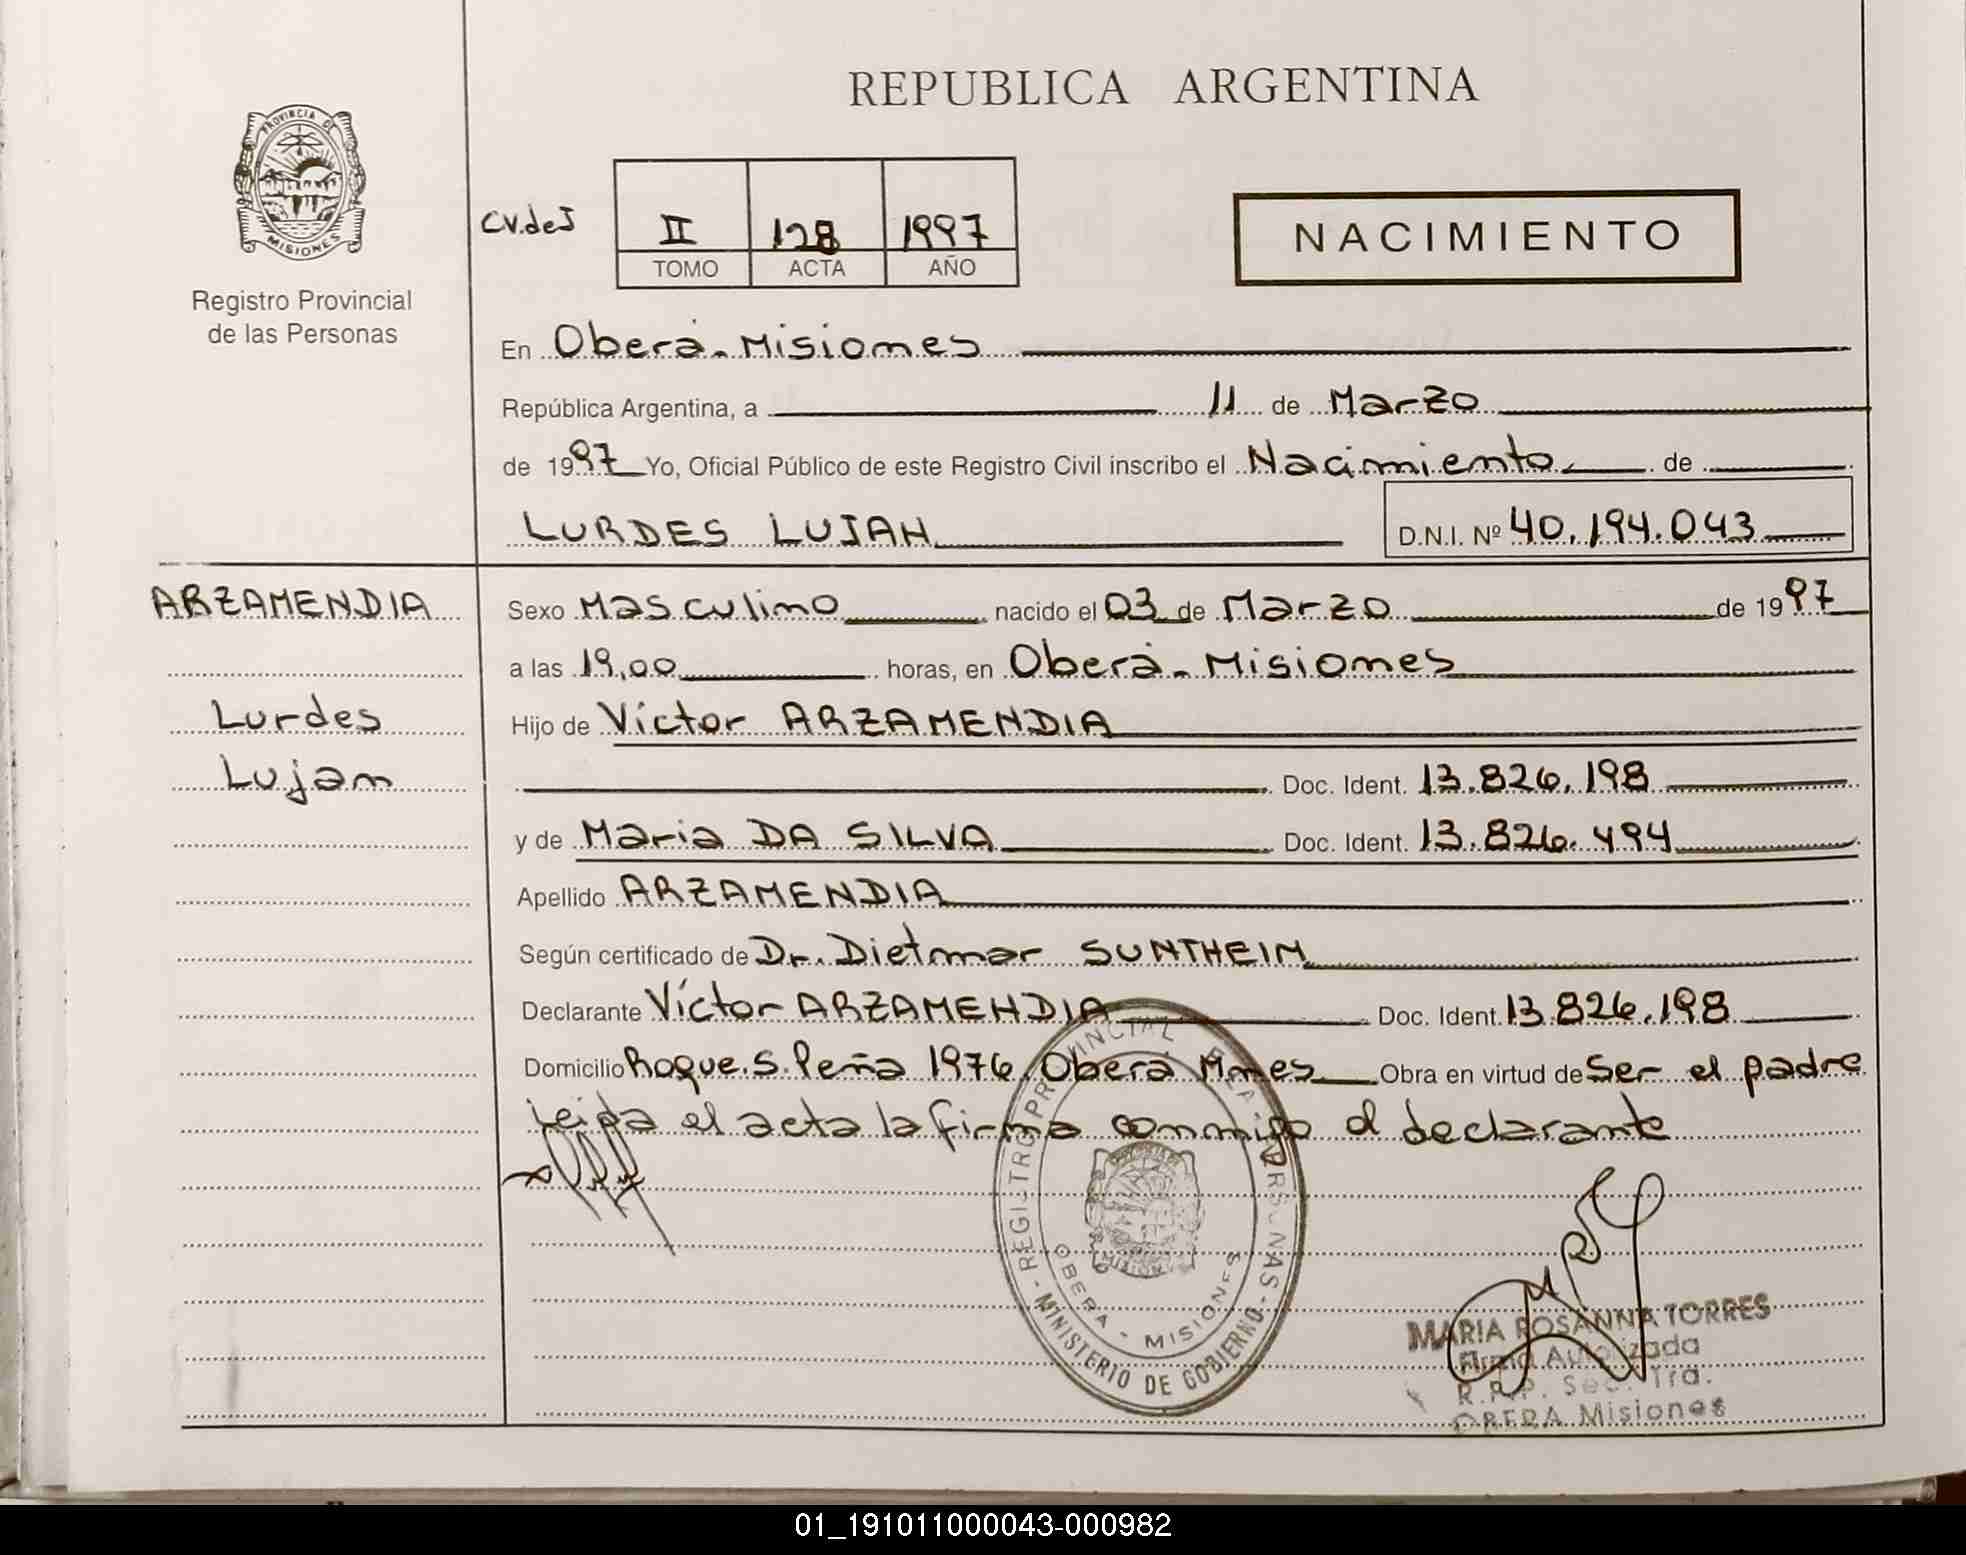 REPUBLICA ARGENTINA
PROVINCIA DE
MISIONES
Registro Provincial
de las Personas
CV.deJ
II 128 1997
TOMO ACTA AÑO
NACIMIENTO
En Oberá-Misiones
República Argentina, a 11 de Marzo
de 1997 Yo, Oficial Público de este Registro Civil inscribo el Nacimiento de
LURDES LUJAN D.N.I. Nº 40.194.043
ARZAMENDIA
Lurdes
Lujan
Sexo Masculino nacido el 03 de Marzo de 1997
a las 19,00 horas, en Oberá-Misiones
Hijo de Víctor ARZAMENDIA
Doc. Ident. 13.826.198
y de Maria DA SILVA Doc. Ident. 13.826.494
Apellido ARZAMENDIA
Según certificado de Dr. Dietmar SUNTHEIM
Declarante Víctor ARZAMENDIA Doc. Ident. 13.826.198
Domicilio Roque.S.Peña 1976, Oberá Mnes Obra en virtud de Ser el padre
Leida el acta la firma conmigo el declarante
REGISTRO PROVINCIAL DE LAS PERSONAS
MINISTERIO DE GOBIERNO
OBERA - MISIONES
MARIA ROSANNA TORRES
Firma Autorizada
R.P.P. Sec. 1ra.
OBERA Misiones
01_191011000043-000982